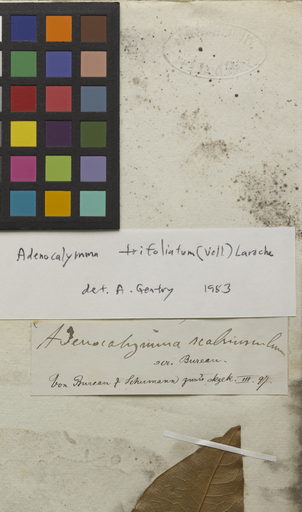 Adenocalymma trifoliatum (Vell) Laroche
det. A. Gentry 1983
Adenocalymma scabriusculum
scr. Bureau.
Von Bureau & Schumann III. 97.